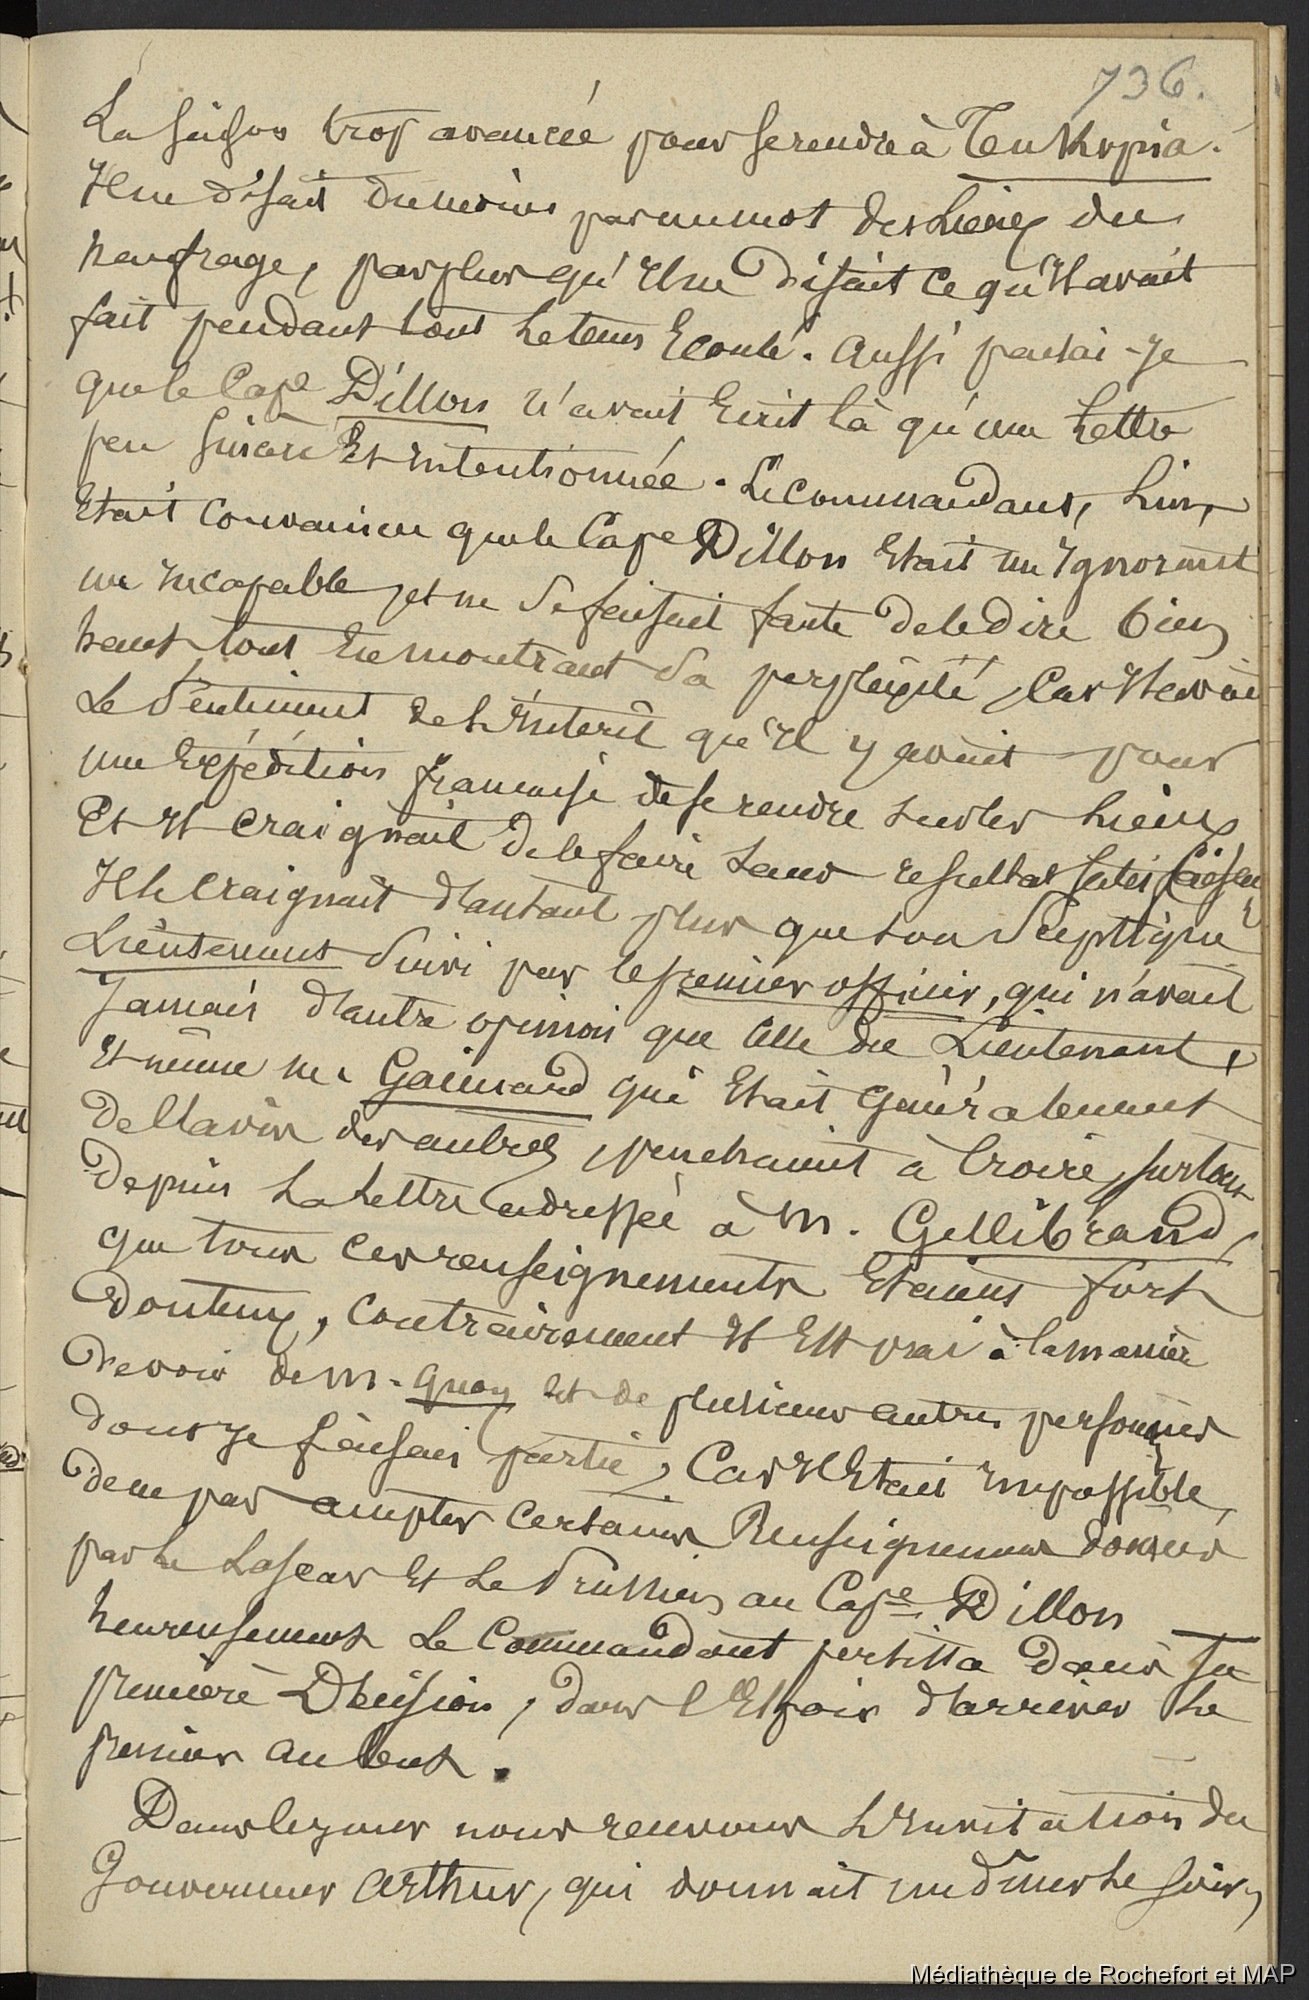 736.
La saison trop avancée pour se rendre à Tenkopia.
Il ne disait du moins pas un mot des lieux du
naufrage, pas plus qu'il ne disait ce qu'il avait
fait pendant tout le tems Ecoulé. Aussi pensai-je
que le Cape Dillon n'avait Ecrit là qu'une Lettre
peu sincère Et intentionnée. Le Commandant, Lui,
Etait convaincu que le Cape Dillon Etait un Ignorant
un incapable, et ne se faisait faute de le dire bien
haut tout En montrant sa perplexité, Car Il avait
Le sentiment de L'Intérêt qu'Il y avait pour
une Expédition française de se rendre sur les Lieux
Et Il craignait de le faire sans resultat satisfaisant
Il le craignait d'autant plus que son Sceptique
Lieutenant suivi par le premier officier, qui n'avait
Jamais d'autre opinion que celle du Lieutenant,
Et même M. Gaimard qui Etait Généralement
De l'avis des autres, penchaient à Croire, surtout
Depuis La Lettre adressée à M. Gellibrand,
que tous ces renseignements Etaient fort
Douteux, Contrairement Il Est vrai à la manière
De voir de M. Quoy Et de plusieurs autres personnes
dont Je faisais partie, Car Il Etait Impossible,
De ne pas accepter certains Renseignemens donnés
par Le Lascar Et Le Prussien au Cape Dillon
heureusement Le Commandant persista dans sa
première Décision, dans l'Espoir d'arriver Le
premier au but.
Dans le jour nous reçumes L'Invitation du
Gouverneur Arthur, qui donnait un dîner le soir,
Médiathèque de Rochefort et MAP